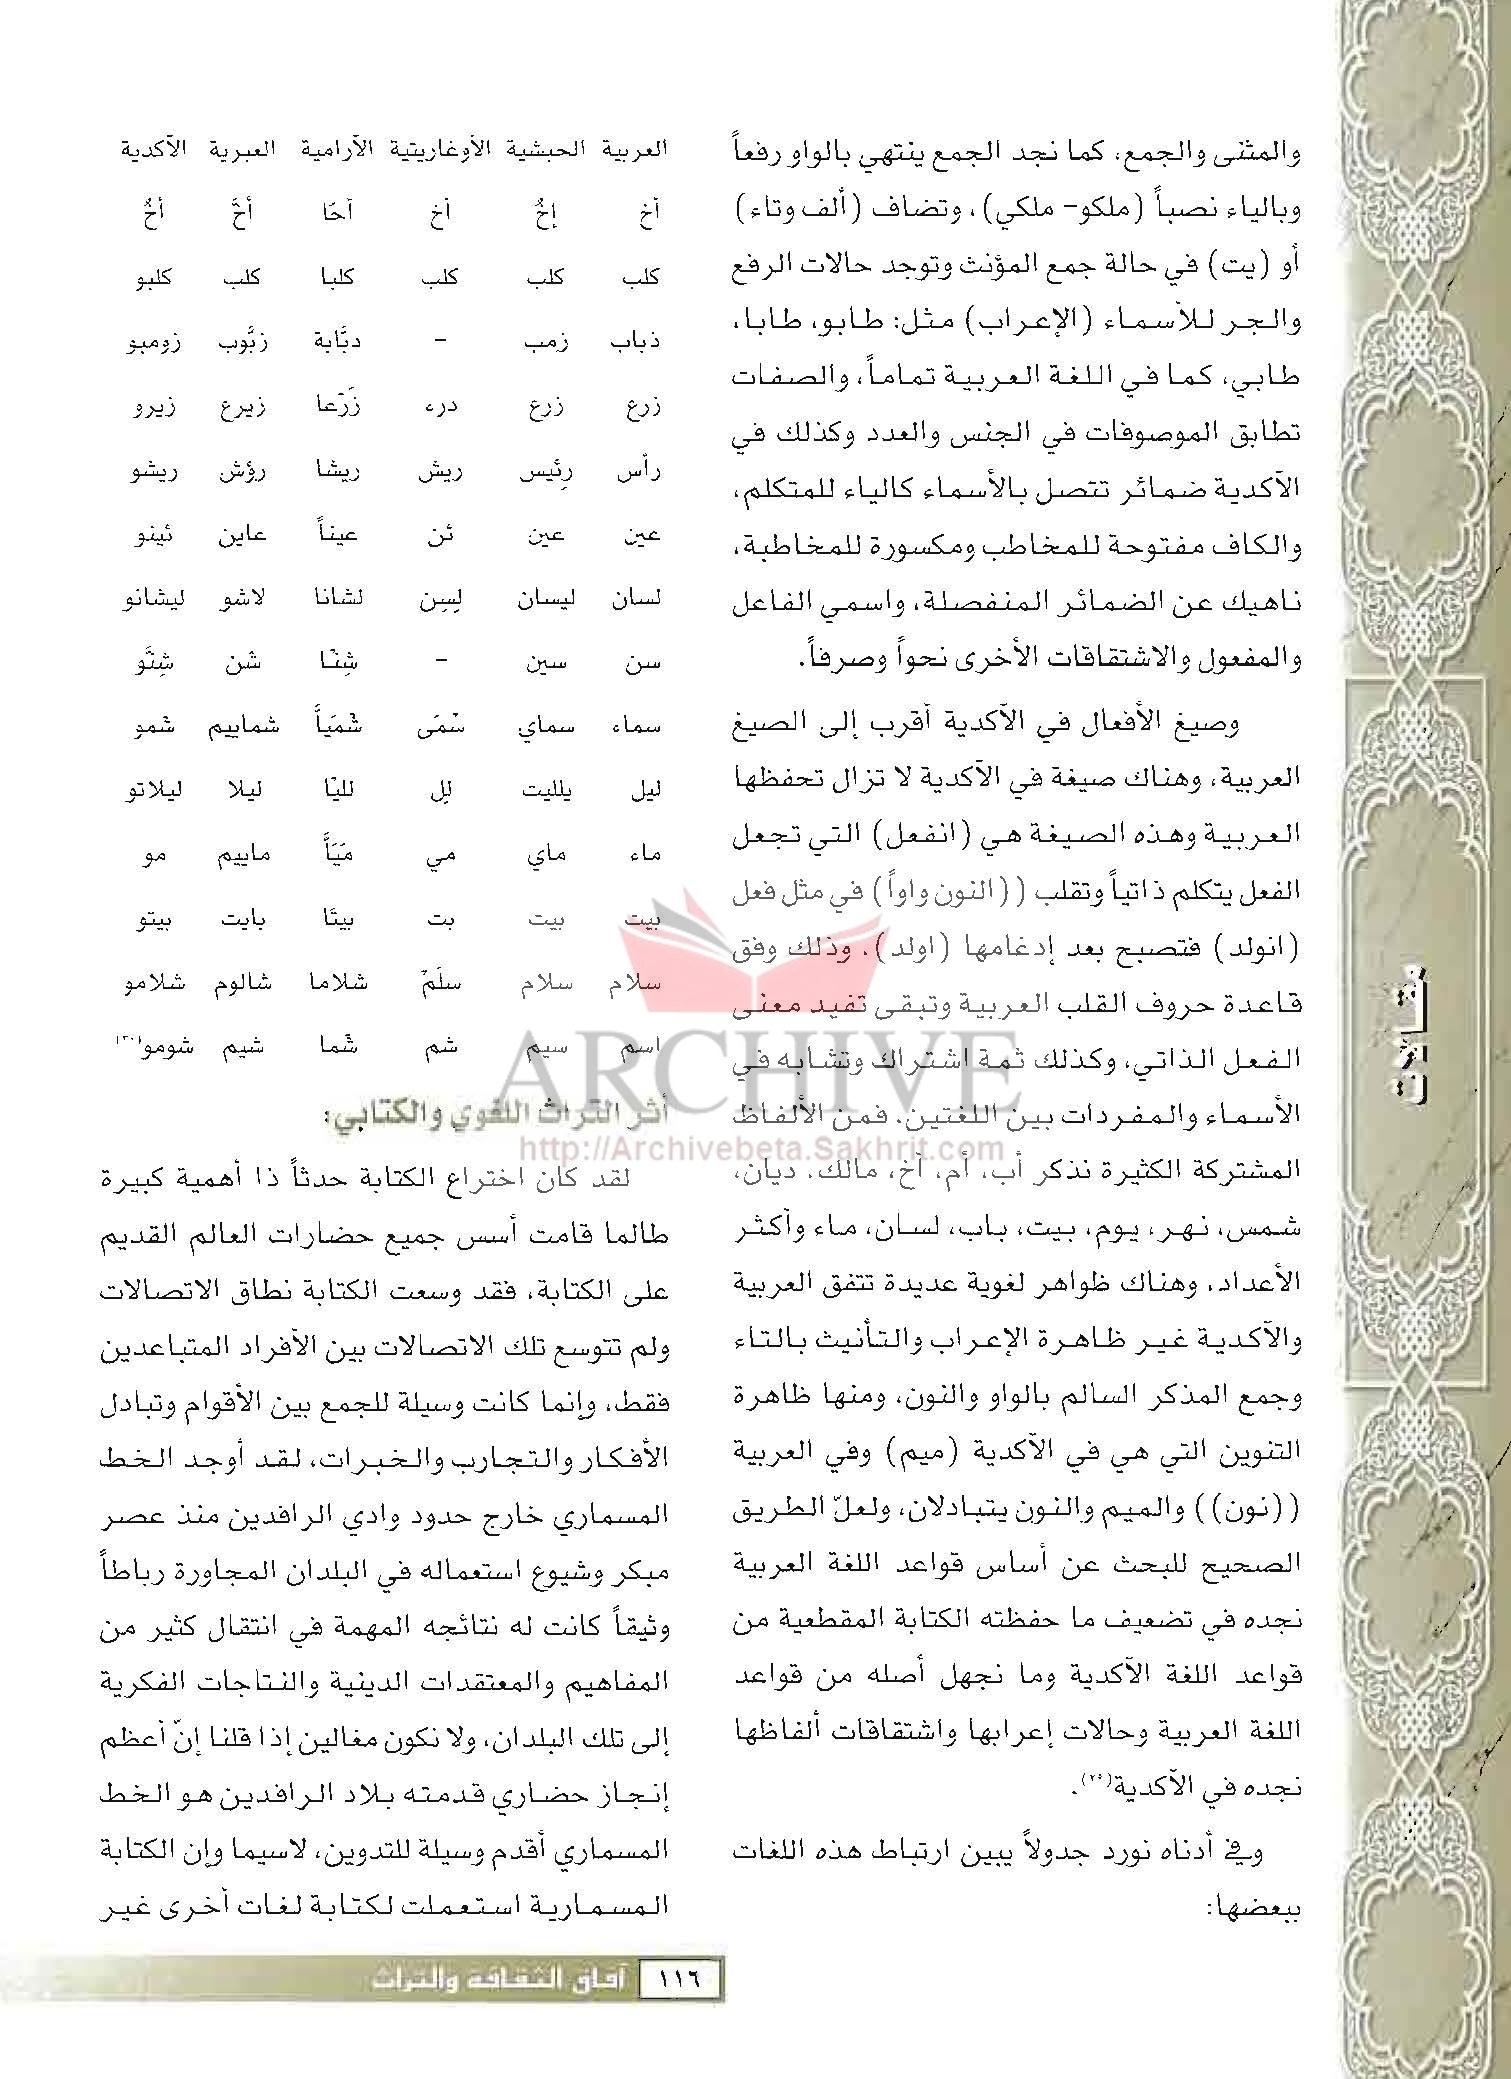 والمثنى والجمع، كما نجد الجمع ينتهي بالواو رفعاً
وبالياء نصباً (ملكو- ملكي)، وتضاف (ألف وتاء)
أو (يت) في حالة جمع المؤنث وتوجد حالات الرفع
والجر للأسماء (الإعراب) مثل: طابو، طابا،
طابي، كما في اللغة العربية تماماً، والصفات
تطابق الموصوفات في الجنس والعدد وكذلك في
الأكدية ضمائر تتصل بالأسماء كالياء للمتكلم،
والكاف مفتوحة للمخاطب ومكسورة للمخاطبة،
ناهيك عن الضمائر المنفصلة، واسمي الفاعل
والمفعول والاشتقاقات الأخرى نحواً وصرفاً.
وصيغ الأفعال في الأكدية أقرب إلى الصيغ
العربية، وهناك صيغة في الأكدية لا تزال تحفظها
العربية وهذه الصيغة هي (انفعل) التي تجعل
الفعل يتكلم ذاتياً وتقلب ((النون واواً) في مثل فعل
(انولد) فتصبح بعد إدغامها (اولد)، وذلك وفق
قاعدة حروف القلب العربية وتبقى تفيد معنى
الفعل الذاتي، وكذلك ثمة اشتراك وتشابه في
الأسماء والمفردات بين اللغتين. فمن الألفاظ
المشتركة الكثيرة نذكر أب، أم، أخ، مالك، ديان،
شمس، نهر، يوم، بيت، باب، لسان، ماء وأكثر
الأعداد، وهناك ظواهر لغوية عديدة تتفق العربية
والأكدية غير ظاهرة الإعراب والتأنيث بالتاء
وجمع المذكر السالم بالواو والنون، ومنها ظاهرة
التنوين التي هي في الأكدية (ميم) وفي العربية
((نون)) والميم والنون يتبادلان، ولعلّ الطريق
الصحيح للبحث عن أساس قواعد اللغة العربية
نجده في تضعيف ما حفظته الكتابة المقطعية من
قواعد اللغة الأكدية وما نجهل أصله من قواعد
اللغة العربية وحالات إعرابها واشتقاقات ألفاظها
نجده في الأكدية(٢٥).
وفي أدناه نورد جدولاً يبين ارتباط هذه اللغات
ببعضها:
العربية الحبشية الأوغاريتية الآرامية العبرية الأكدية
أخ إخُ أخ أحَا أخَّ أخُ
كلب كلب كلب كلبا كلب كلبو
ذباب زمب - دبَّابة زبُّوب زومبو
زرع زرع درء زَرْعا زيرع زيرو
رأس رِئيس ريش ريشا رؤش ريشو
عين عين ئن عيناً عاين ئينو
لسان ليسان لِسِن لشانا لاشو ليشانو
سن سين - شِنَا شن شِنَّو
سماء سماي سْمَى شْمَيَأَ شماييم شمو
ليل يلليت لِل لليْا ليلا ليلاتو
ماء ماي مي مَيَأَ ماييم مو
بيت بيت بت بيتَا بايت بيتو
سلام سلام سلَمْ شلاما شالوم شلامو
اسم سيم شم شْما شيم شومو
أثر التراث اللغوي والكتابي:
لقد كان اختراع الكتابة حدثاً ذا أهمية كبيرة
طالما قامت أسس جميع حضارات العالم القديم
على الكتابة، فقد وسعت الكتابة نطاق الاتصالات
ولم تتوسع تلك الاتصالات بين الأفراد المتباعدين
فقط، وإنما كانت وسيلة للجمع بين الأقوام وتبادل
الأفكار والتجارب والخبرات، لقد أوجد الخط
المسماري خارج حدود وادي الرافدين منذ عصر
مبكر وشيوع استعماله في البلدان المجاورة رباطاً
وثيقاً كانت له نتائجه المهمة في انتقال كثير من
المفاهيم والمعتقدات الدينية والنتاجات الفكرية
إلى تلك البلدان، ولا نكون مغالين إذا قلنا إنّ أعظم
إنجاز حضاري قدمته بلاد الرافدين هو الخط
المسماري أقدم وسيلة للتدوين، لاسيما وإن الكتابة
المسمارية استعملت لكتابة لغات أخرى غير
مقالات
ARCHIVE
http://Archivebeta.Sakhrit.com
١١٦ آفاق الثقافة والتراث